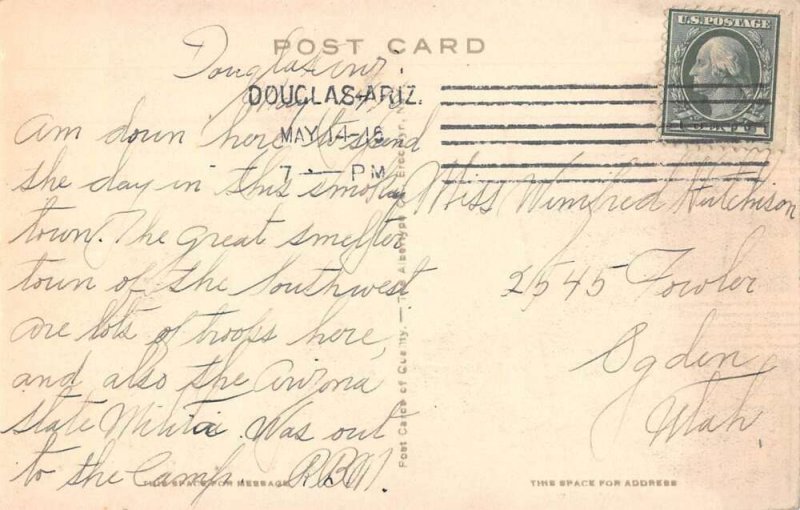 POST CARD
U.S. POSTAGE
Douglas
DOUGLAS, ARIZ.
MAY 14-16
7 — PM
Am down here to spend
the day in this smoky
town. The great smelter
town of the Southwest
are lots of troops here,
and also the Arizona
State Militia. Was out
to the Camp. RBM.
Miss Winifred Hutchison
2545 Fowler
Ogden
Utah
Post Cards of Quality. — The Albertype Co., Brooklyn, N.
THIS SPACE FOR MESSAGE
THIS SPACE FOR ADDRESS